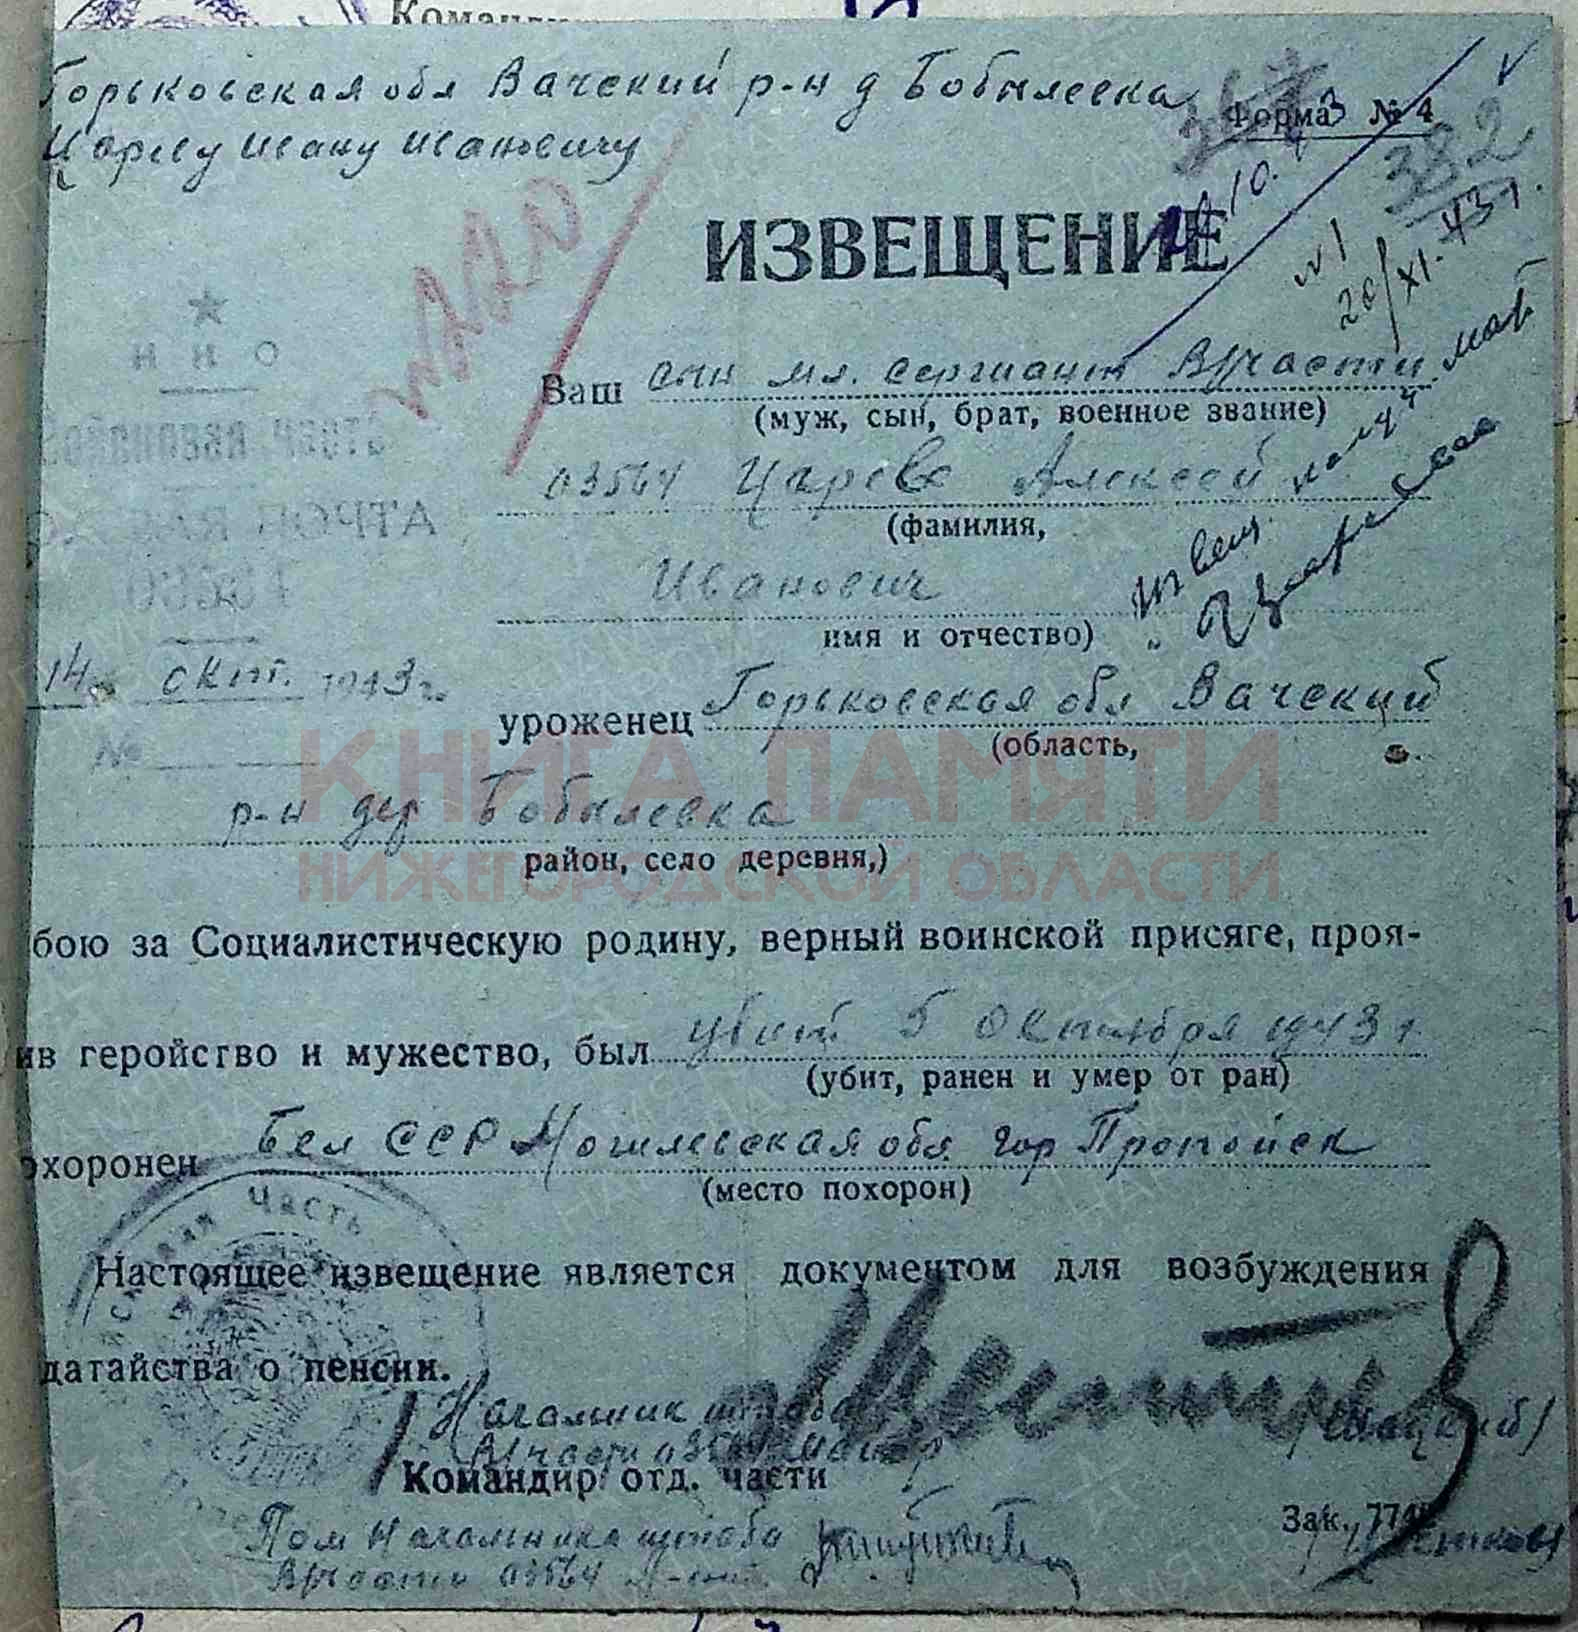 Горьковская обл Вачский р-н д Бобылевка
Цареву Ивану Ивановичу
Форма № 4
382
ИЗВЕЩЕНИЕ
№1
20/XI.43г.
Ваш сын мл. сержиант В/части
(муж, сын, брат, военное звание)
03564 Царев Алексей
(фамилия,
Иванович
имя и отчество)
Извещ. получ. мать
Царева
14 окт. 1943г.
№
уроженец Горьковская обл Вачский
(область,
р-н дер Бобылевка
район, село деревня,)
КНИГА ПАМЯТИ
НИЖЕГОРОДСКОЙ ОБЛАСТИ
бою за Социалистическую родину, верный воинской присяге, проя-
ив геройство и мужество, был убит 5 Октября 1943 г
(убит, ранен и умер от ран)
охоронен Бел ССР Могилевская обл гор Пропойск
(место похорон)
Часть
Настоящее извещение является документом для возбуждения
датайства о пенсии.
Начальник штаба
В/части 03564 Майор
Командир отд. части
Зак.
Пом Начальника штаба
В/части 03564